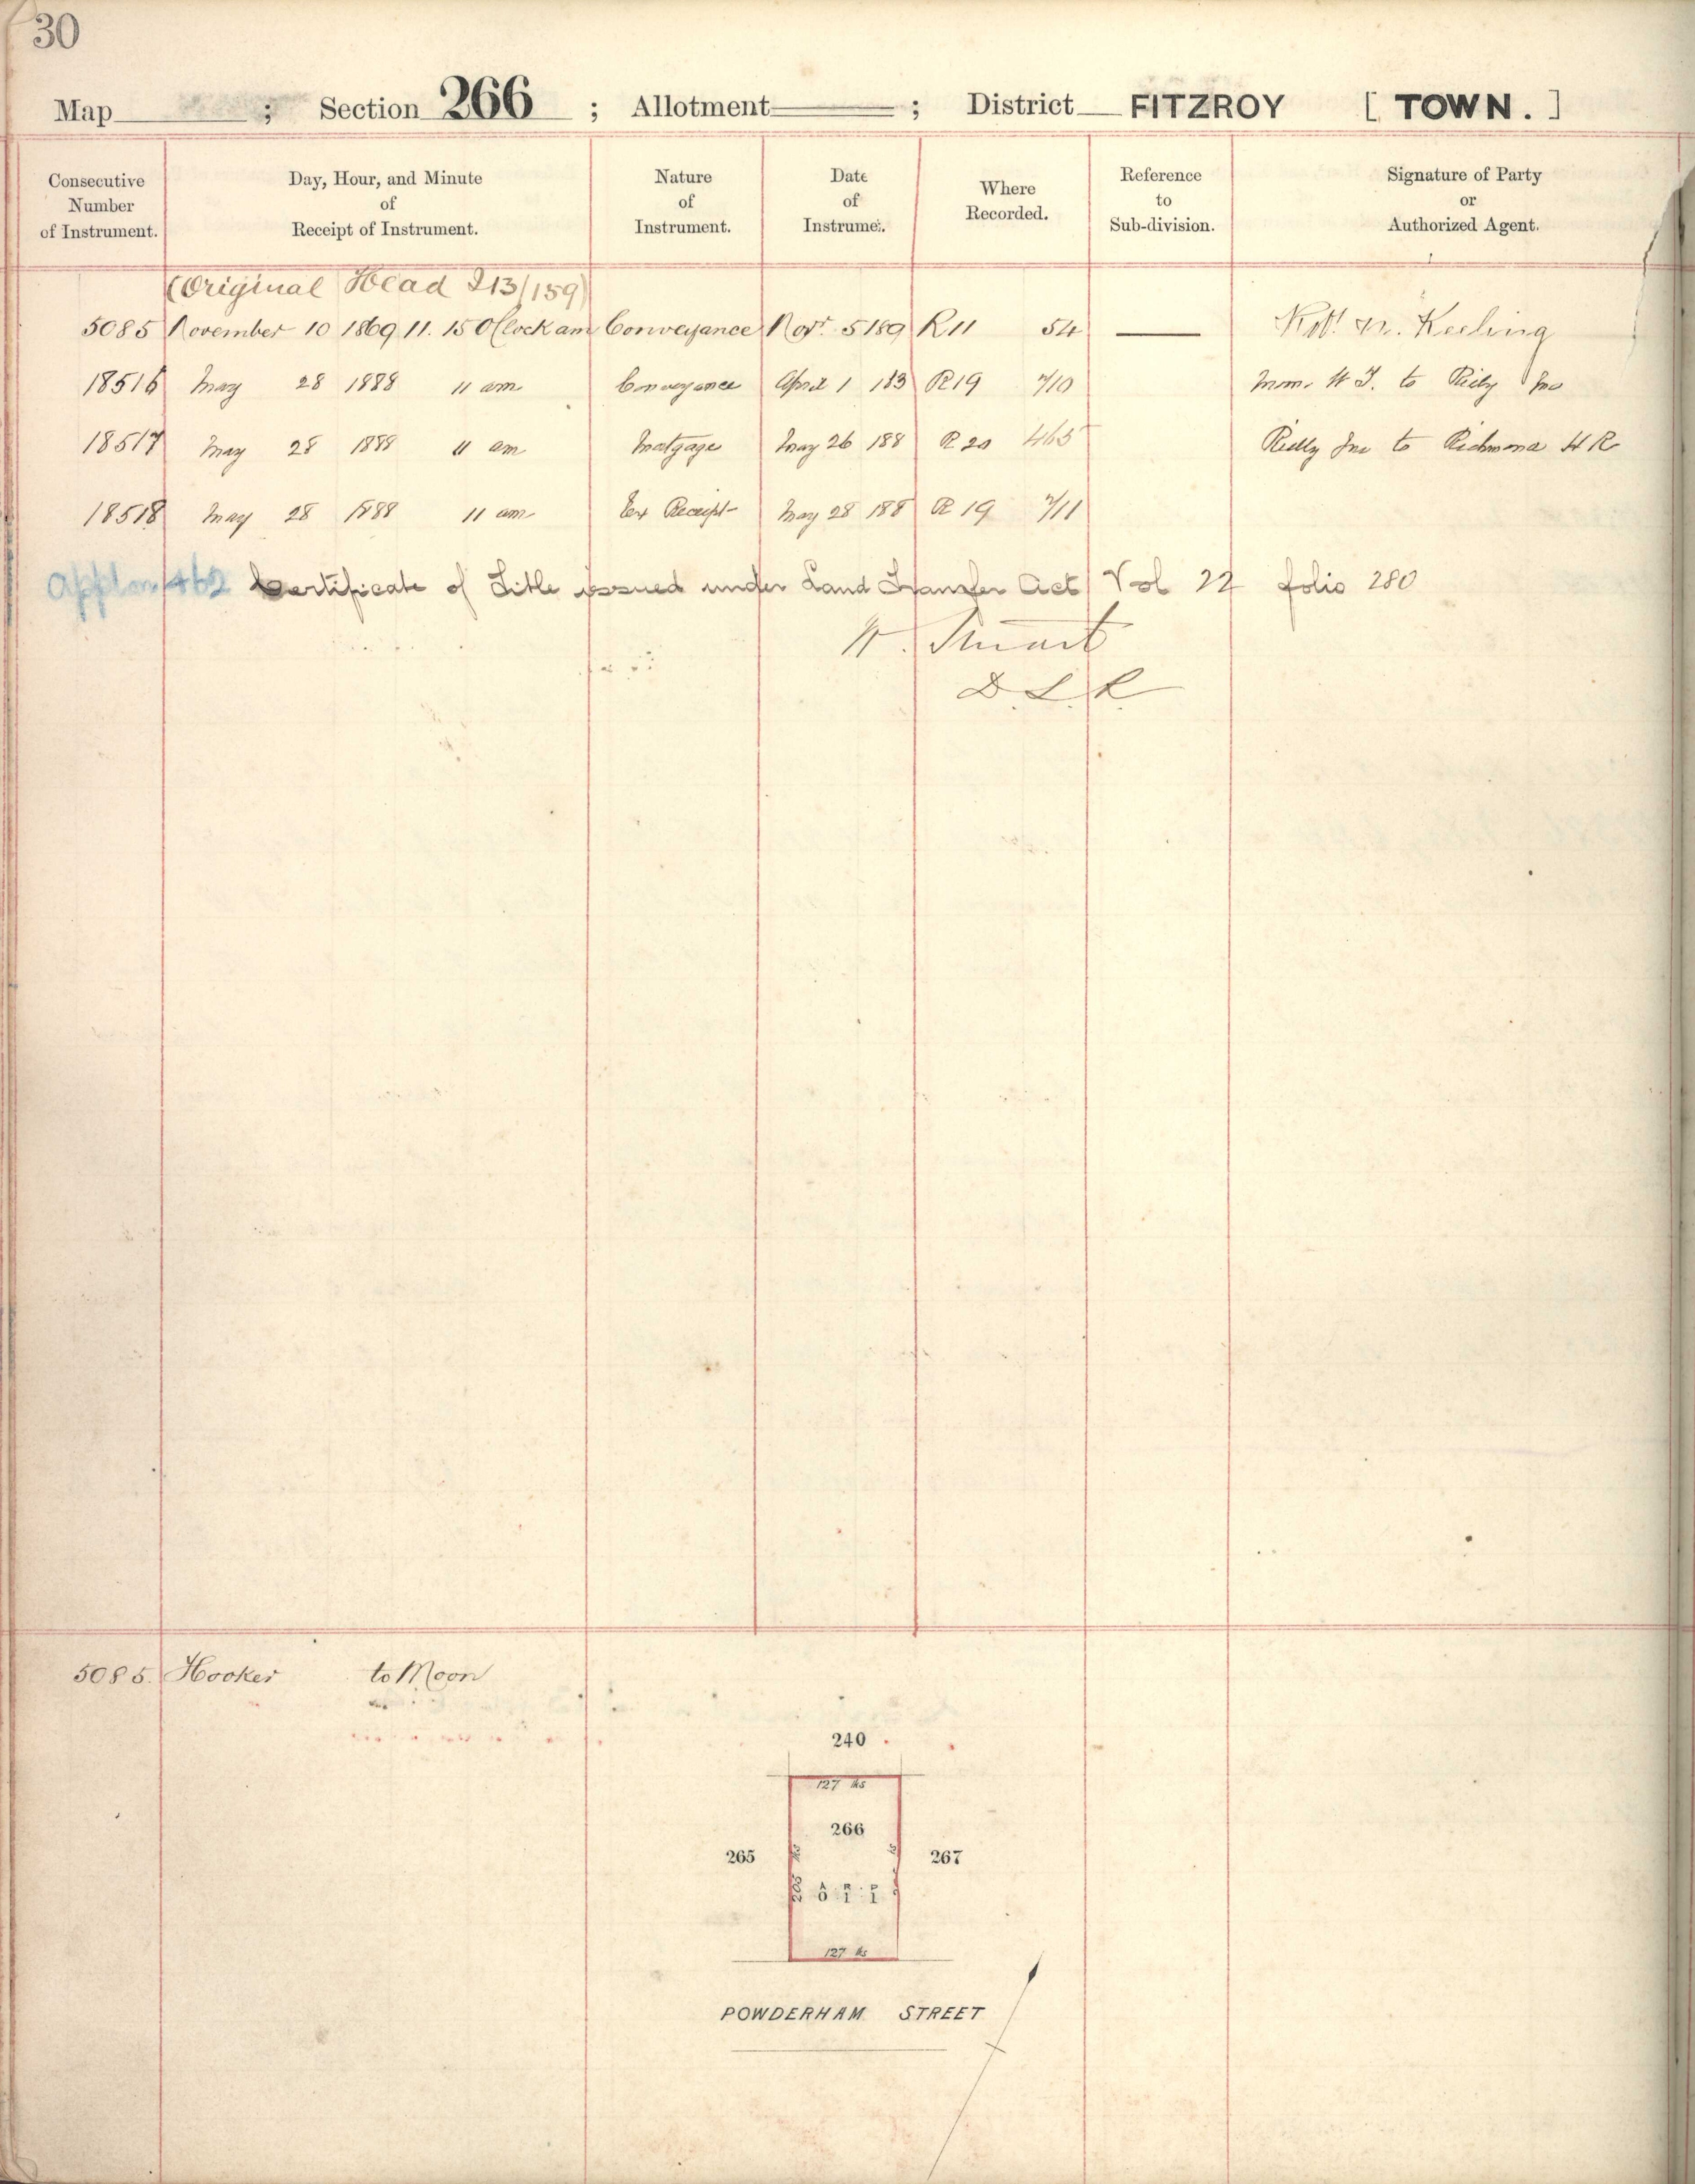 30
Map ; Section 266 ; Allotment ; District FITZROY [ TOWN. ]
Consecutive Number of Instrument.
Day, Hour, and Minute of Receipt of Instrument.
Nature of Instrument.
Date of Instrume:.
Where Recorded.
Reference to Sub-division.
Signature of Party or Authorized Agent.
(Original Head I13/159)
5085 November 10 1869 11. 15 OClock am Conveyance Novr. 5 189 R11 54 Robt. M. Keeling
18516 May 28 1888 11 am Conveyance April 1 183 R19 710 to
18517 May 28 1888 11 am Mortgage May 26 188 R 20 465 Reilly Jno to Richmond H R
18518 May 28 1888 11 am Receipt May 28 188 R 19 711
Appln 462 Certificate of Title issued under Land Transfer Act Vol 22 folio 280
W. Stuart
D. L. R.
5085. Hooker to Moon
240
127 lks
266
265
267
127 lks
POWDERHAM STREET